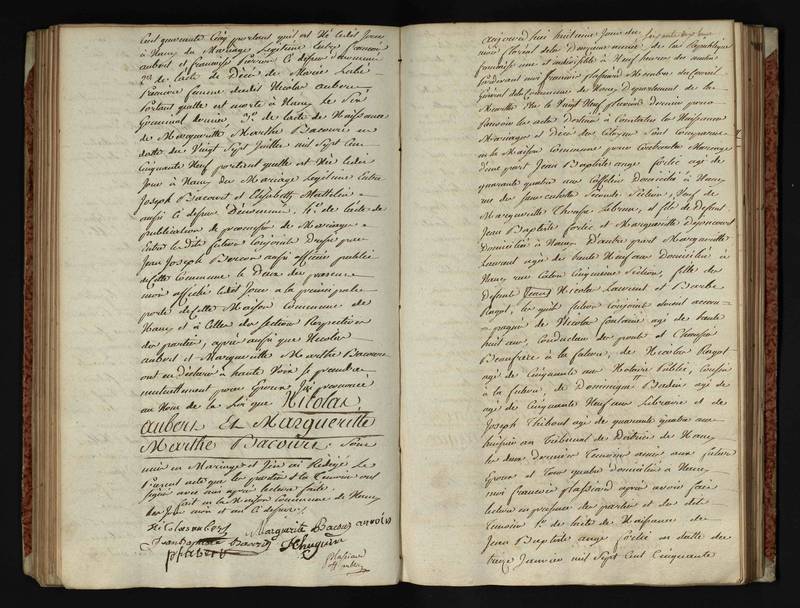 Cent quarante Cinq portant qu'il est Né ledit Jour
à Nancy du Mariage Legitime Entre francois
aubert et francoise Pierron Ci dessus denommé
2° de l'acte de Décé de Marie
Premiere femme dudit Nicolas aubert,
Portant quelle est morte à Nancy Le Six
Germinal dernier, 3° de l'acte de Naissance
de Margueritte Marthe Bacourt en
datte du Vingt Sept Juillet mil Sept Cent
Cinquante Neuf portant quelle est Née ledit
Jour à Nancy du Mariage Legitime Entre
Joseph Bacourt et Elisabeth Mathelin
aussi Ci dessus Denommé, 4° de l'acte de
publication de promesse de Mariage
Entre ledits futurs Conjoints Dressé par
Jean Joseph aussi officier public
de cette Commune le Deux du present
mois affiché ledit Jour a la principale
porte de cette Maison Commune de
Nancy et à Celles des Section Respectives
des parties, apres aussi que Nicolas
aubert et Margueritte Marthe Bacourt
ont eu déclaré à haute Voix se prendre
mutuellement pour Epoux J'ai prononcé
au Nom de la Loi que Nicolas
Aubert Et Margueritte
Marthe Bacourt, Sont
unis en Mariage et J'en ai Redigé Le
Present acte que les parties et les Temoins ont
signé avec moi apres lecture faite.
Fait en la Maison Commune de Nancy
Les Jour mois et an Ci dessus /.
Nicolas aubert
Marguerite Bacour
Jean Baptiste Bacour
Plassiard
off. public
aujourd'hui huitieme Jour du
mois floréal de la Deuxieme année de la Republique
francaise une et indivisible à Neuf heures du matin
Pardevant moi francois plassiard Membre du Conseil
Général de la Commune de Nancy Departement de la
Meurthe Elu le Vingt Neuf pluviose dernier pour
Recevoir les actes Destinés à Constater les Naissances
Mariages et Décé des Citoyens Sont Comparus
en la Maison Commune pour Contracter Mariage
d'une part Jean Baptiste ange agé de
quarante quatre ans Domicilié à Nancy
rue des Seconde Section, Veuf de
Margueritte Therese, fils de Defunt
Jean Baptiste et Margueritte
Domicilié à Nancy, D'autre part Margueritte
Laurent agée de trente Neuf ans Domiciliée à
Nancy rue Caton Cinquieme Section, fille de
Defunt Jean Nicolas Laurent et Barbe
Ragot, les quels futurs Conjoints étoient accom-
-pagnés de Nicolas fontaine agé de trente
huit ans, Conducteur des ponts et Chaussées
Beaufrere à la future, de Nicolas Ragot
agé de Cinquante ans Notaire Public, Cousin
à la future, de Dominique agé
agé de Cinquante Neuf ans Libraire et de
Joseph Thibout agé de quarante quatre ans
huissier au Tribunal de District de Nancy
les deux derniers Temoins amis aux futurs
Epoux et Tous quatre Domiciliés à Nancy
moi francois plassiard après avoir fait
lecture en presence des parties et des dits
Temoins 1° de l'acte de Naissance de
Jean Baptiste ange en datte du
treize Janvier mil Sept Cent Cinquante